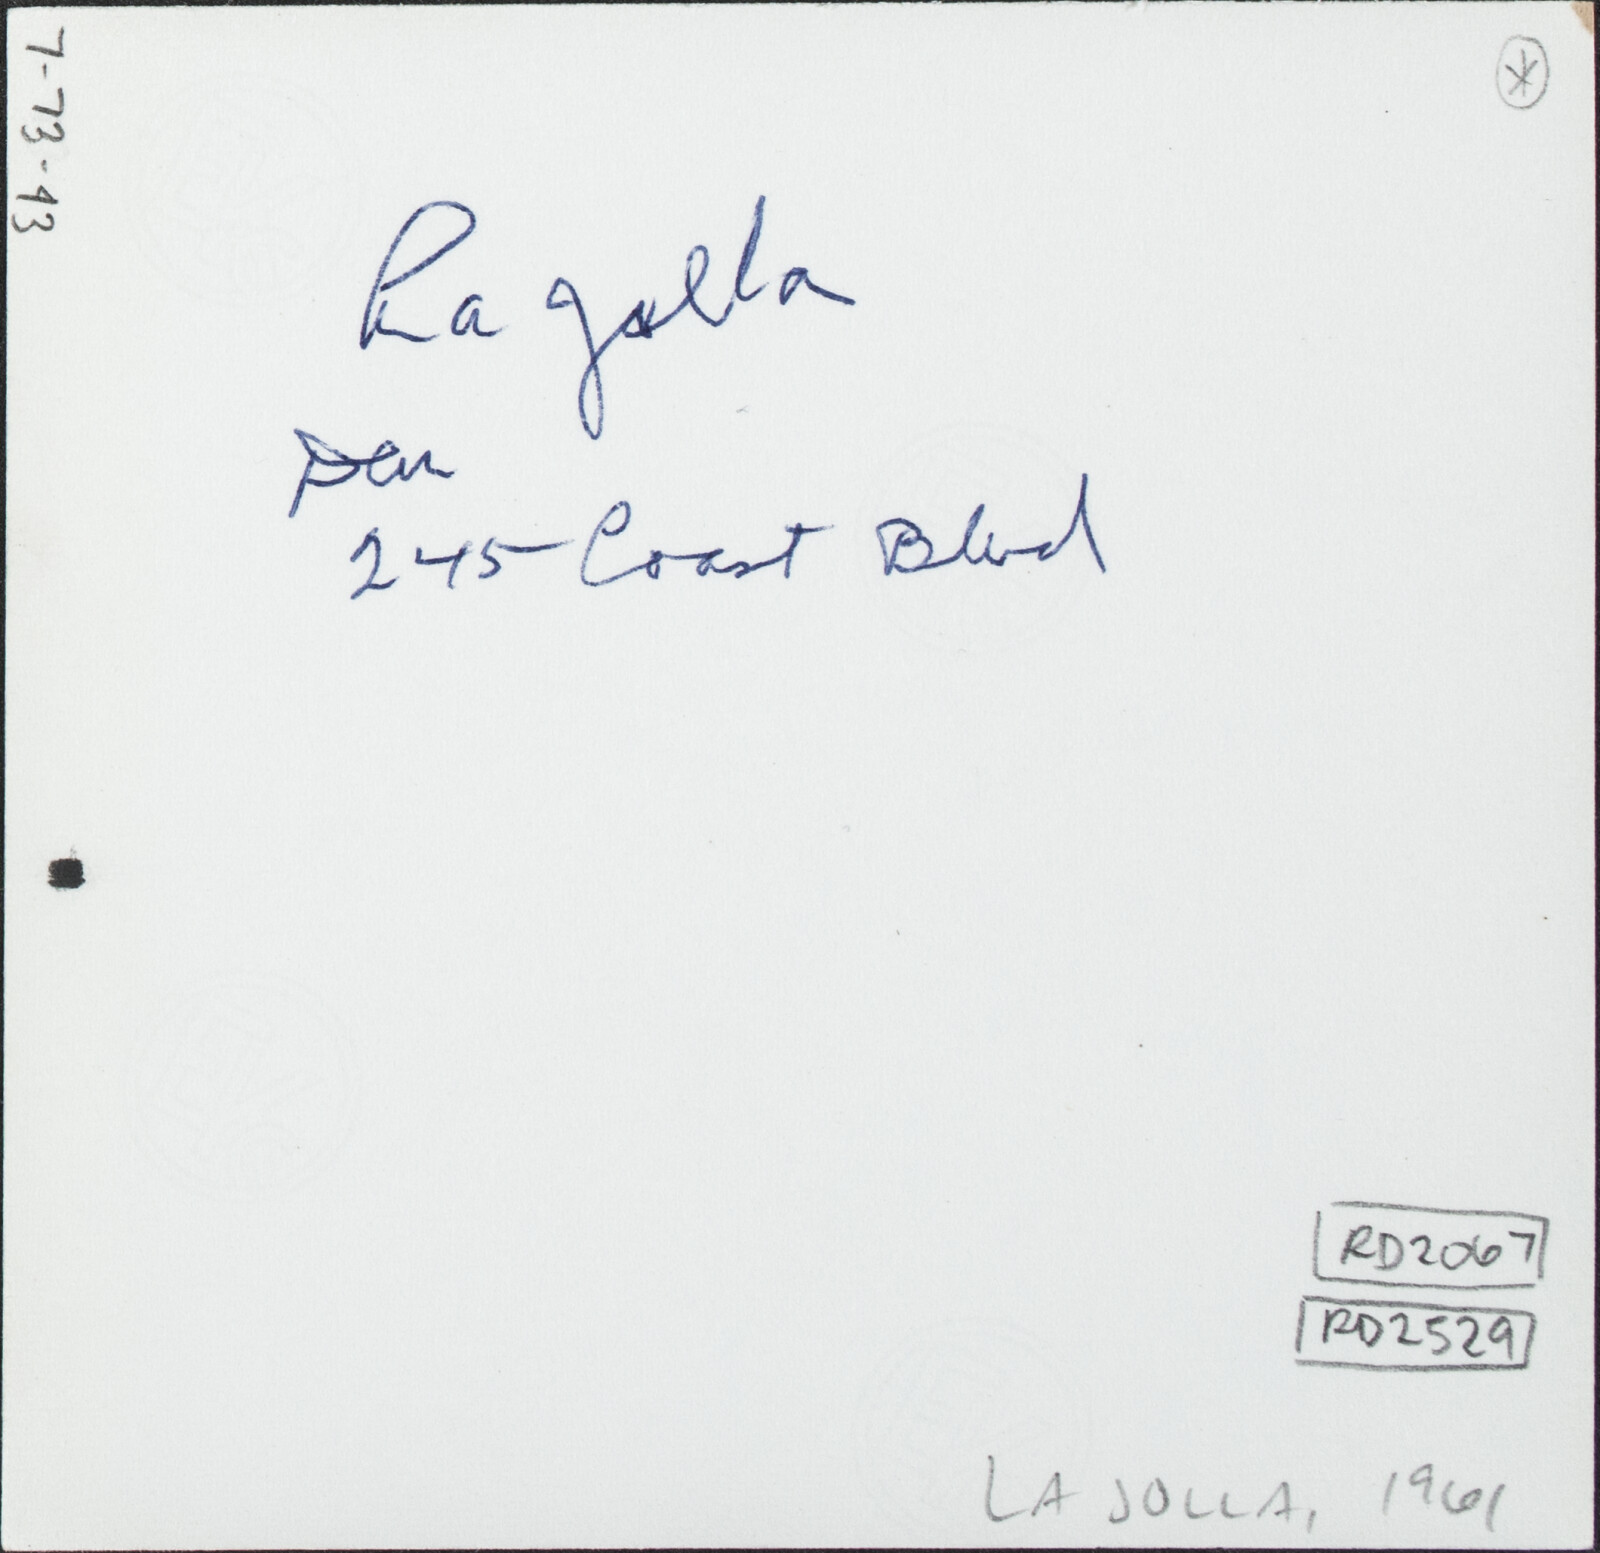 7-73-43
La Jolla
Den
245 Coast Blvd
RD2067
RD2529
LA JOLLA, 1961